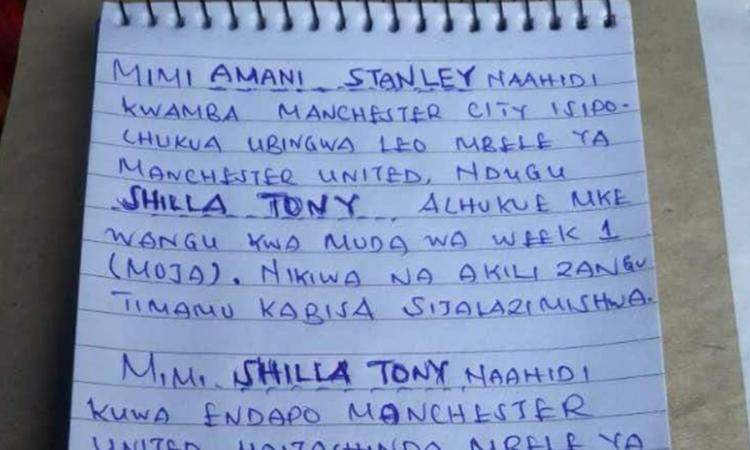 MIMI AMANI STANLEY NAAHIDI
KWAMBA MANCHESTER CITY ISIPO-
CHUKUA UBINGWA LEO MBELE YA
MANCHESTER UNITED, NDUGU
SHILLA TONY ALHUKUE MKE
WANGU KWA MUDA WA WEEK 1
(MOJA). NIKIWA NA AKILI ZANGU
TIMAMU KABISA SIJALAZIMISHWA.
MIMI SHILLA TONY NAAHIDI
KUWA ENDAPO MANCHESTER
UNITED HAITACHINDA MBELE YA